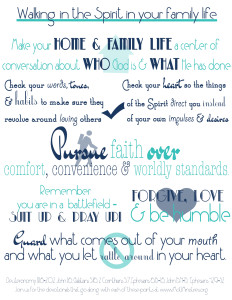 Walking in the Spirit in your family life
Make your HOME & FAMILY LIFE a center of
conversation about WHO God is & WHAT He has done
Check your words, tones,
& habits to make sure they
revolve around loving others
Check your heart so the things
of the Spirit direct you instead
of your own impulses & desires
Pursue faith over
comfort, convenience & worldly standards
Remember
you are in a battlefield -
SUIT UP & PRAY UP!
FORGIVE, LOVE
& be humble
Guard what comes out of your mouth
and what you let rattle around in your heart